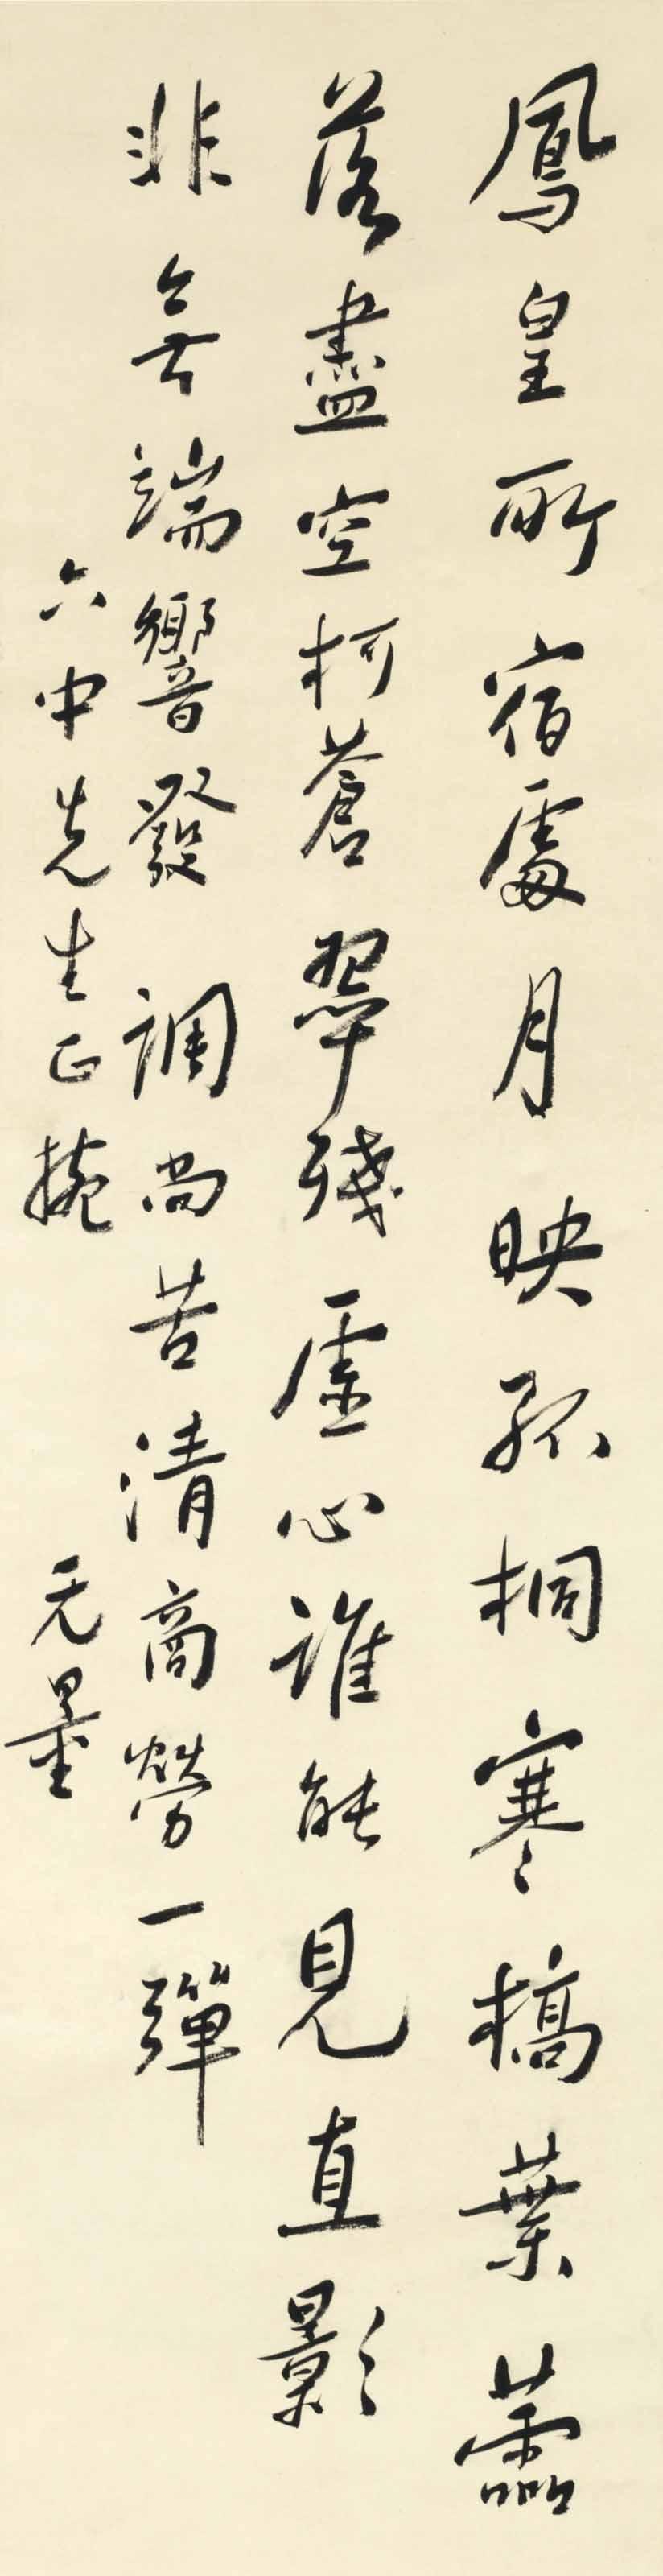 鳳皇所宿處月映孤桐寒槁葉蘦
落盡空柯蒼翠殘虛心誰能見直影
非無端響發調尚苦清商勞一彈
六中先生正捥
无量